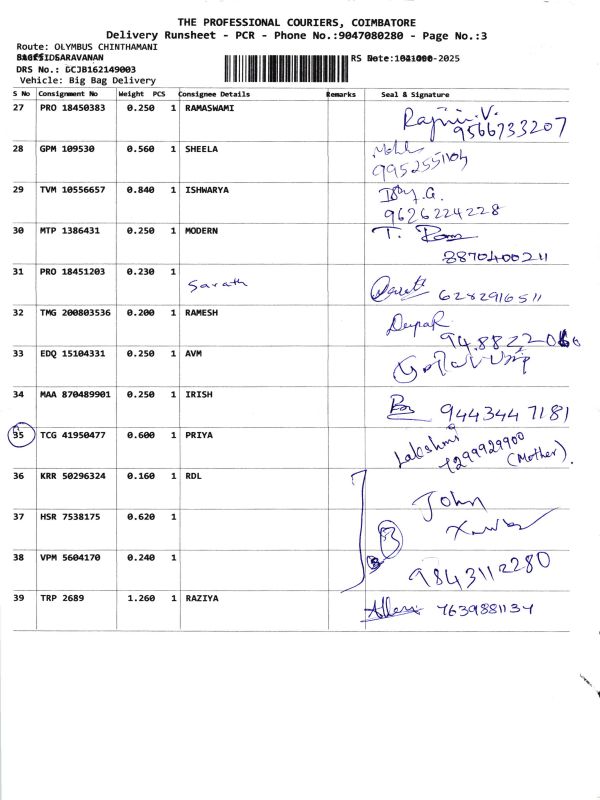 THE PROFESSIONAL COURIERS, COIMBATORE
Delivery Runsheet - PCR - Phone No.:9047080280 - Page No.:3
Route: OLYMBUS CHINTHAMANI
SARAVANAN
RS Date: -2025
DRS No.: DCJB162149003
Vehicle: Big Bag Delivery
S No Consignment No Weight PCS Consignee Details Remarks Seal & Signature
27 PRO 18450383 0.250 1 RAMASWAMI Rajini.V.
9566733207
28 GPM 109530 0.560 1 SHEELA
9952551104
29 TVM 10556657 0.840 1 ISHWARYA
9626224228
30 MTP 1386431 0.250 1 MODERN T.
8870400211
31 PRO 18451203 0.230 1
Sarath 6282916511
32 TMG 200803536 0.200 1 RAMESH Deepak
33 EDQ 15104331 0.250 1 AVM
34 MAA 870489901 0.250 1 IRISH 9443447181
35 TCG 41950477 0.600 1 PRIYA Lakshmi
7299929900
(Mother).
36 KRR 50296324 0.160 1 RDL
John
37 HSR 7538175 0.620 1
3
38 VPM 5604170 0.240 1
9843112280
39 TRP 2689 1.260 1 RAZIYA 7639881134